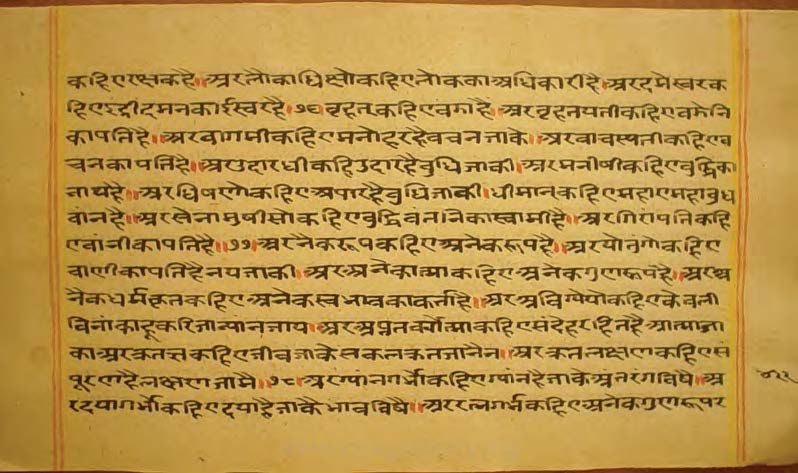 कहिए रक्षक है॥ अर लोकाधिक्षो कहिए लोक का अधिकारी है॥ अर दमेस्वर क
हिए इंद्रीदमन का ईस्वर है॥ ७६ वृहत् कहिए बडा है॥ अर वृहतपती कहिए बडेनि
का पति है॥ अर वागमी कहिए मनोहर है वचन जाके॥ अर वाचस्पती कहिए व
चन का पति है॥ अर उदारधी कहिए उदार है बुधि जाकी॥ अर मनीषी कहिए बुद्धि का
नाथ है॥ अर धिषणो कहिए अपार है बुधि जाकी॥ धीमान् कहिए महाए महाबुध
वांन है॥ अर सेनामुषीसो कहिए बुद्धिवंतनि का स्वामी है॥ अर गिरांपति कहि
ए वांनी का पति है॥ ७७॥ अर नैकरूप कहिए अनेकरूप है॥ अर योतुंगो कहिए
वाणी का पति है नय जाकी॥ अर अनेकात्मा कहिए अनेक गुणरूप है॥ अर अ
नैकधर्मकृत कहिए अनेक स्वभाव का कर्ता है॥ अर अविग्येयो कहिए केवली
विनां काहू करि जान्या न जाय॥ अर अप्रतर्क्यात्मा कहिए संदेह रहित है आत्मा जा
का अर कृतज्ञ कहिए जीव जाके सकल कृत जानैन॥ अर कृतलक्षण कहिए सं
पूरण है लक्षण जामै॥ ७८॥ अर ग्यांनगर्भो कहिए ग्यांन है जाके अंतरग विषै॥ अ
र दयागर्भो कहिए दया है जाकै भाव विषै॥ अर रत्नगर्भ कहिए अनेक गुणरूप र